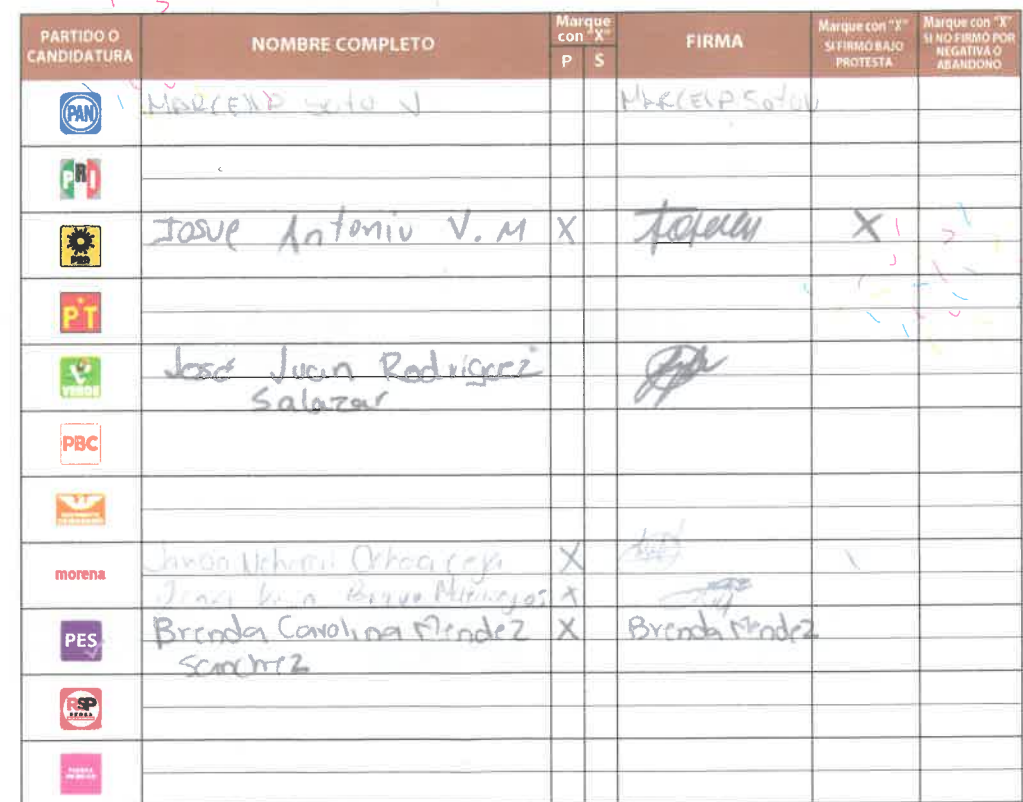 PARTIDO O CANDIDATURA
NOMBRE COMPLETO
Marque con "X"
P S
FIRMA
Marque con "X" SI FIRMÓ BAJO PROTESTA
Marque con "X" SI NO FIRMÓ POR NEGATIVA O ABANDONO
PAN MARCELA Soto V MARCELA Soto V
PRI
PRD Josue Antonio V. M X X
PT
VERDE José Juan Rodriguez
Salazar
PBC
morena Ochoa X
X
PES Brenda Carolina Mendez X Brenda Mendez
Sanchez
RSP